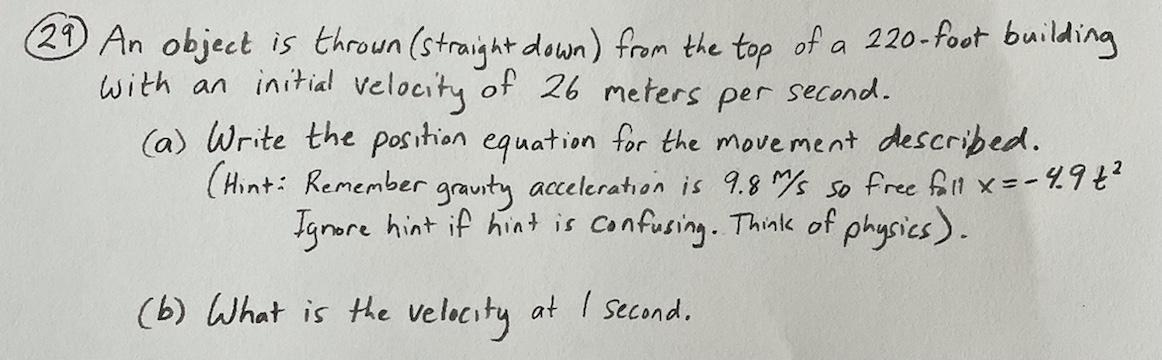 29 An object is thrown (straight down) from the top of a 220-foot building
with an initial velocity of 26 meters per second.
(a) Write the position equation for the movement described.
(Hint: Remember gravity acceleration is 9.8 m/s so free fall x = -4.9 t²
Ignore hint if hint is confusing. Think of physics).
(b) What is the velocity at 1 second.